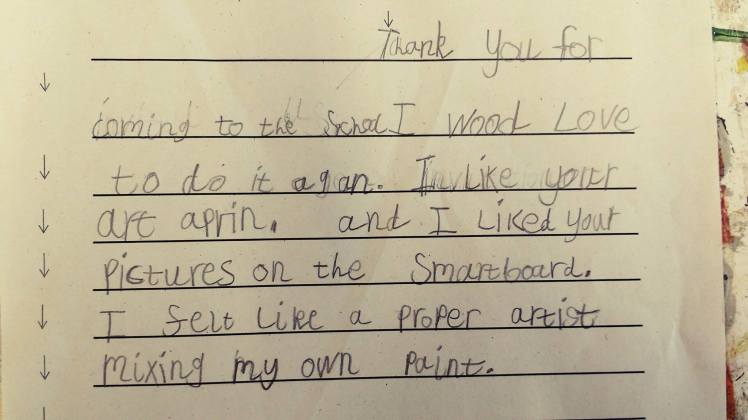 Thank you for
coming to the School I wood Love
to do it agan. I like your
art aprin. and I Liked your
pictures on the Smartboard.
I felt like a proper artist
mixing my own paint.